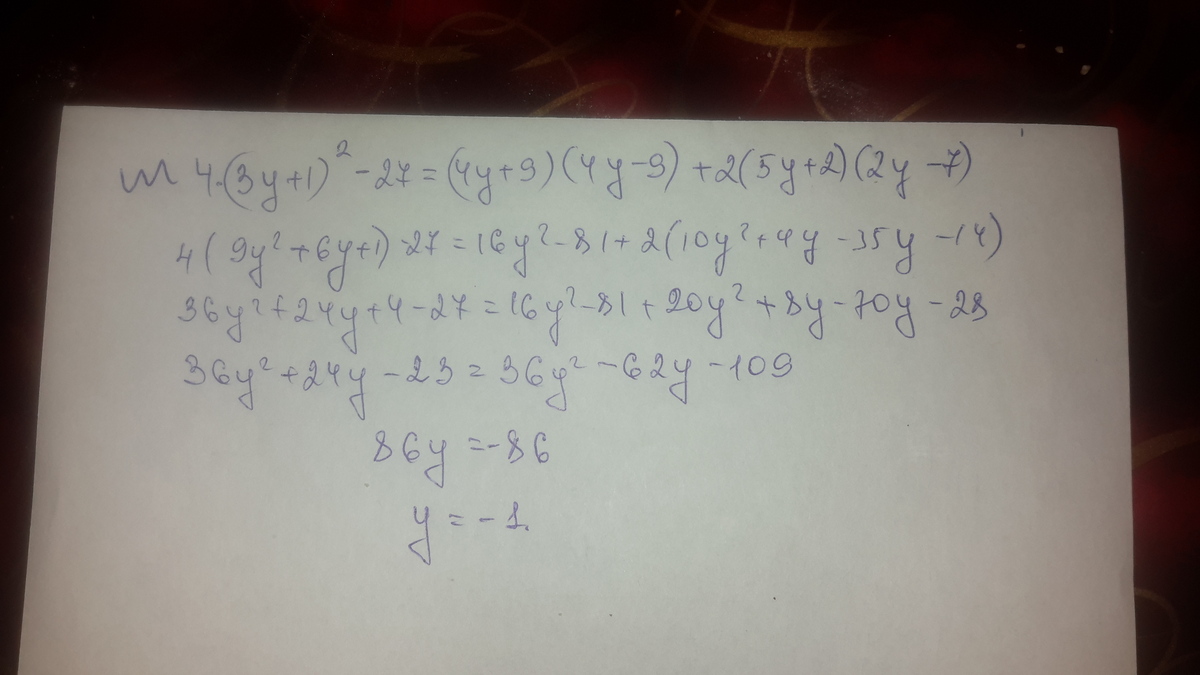 4·(3y+1)² -27=(4y+9)(4y-9)+2(5y+2)(2y-7)
4(9y²+6y+1)-27=16y²-81+2(10y²+4y-35y-14)
36y²+24y+4-27=16y²-81+20y²+8y-70y-28
36y²+24y-23=36y²-62y-109
86y=-86
y=-1.